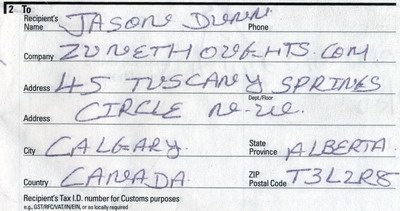 2 To
Recipient's Name JASON DUNN Phone
Company ZUNETHOUGHTS.COM
Address 45 TUSCANY SPRINGS
Dept./Floor
Address CIRCLE N.W.
City CALGARY State Province ALBERTA
Country CANADA ZIP Postal Code T3L2R8
Recipient's Tax I.D. number for Customs purposes
e.g., GST/RFC/VAT/IN/EIN, or as locally required